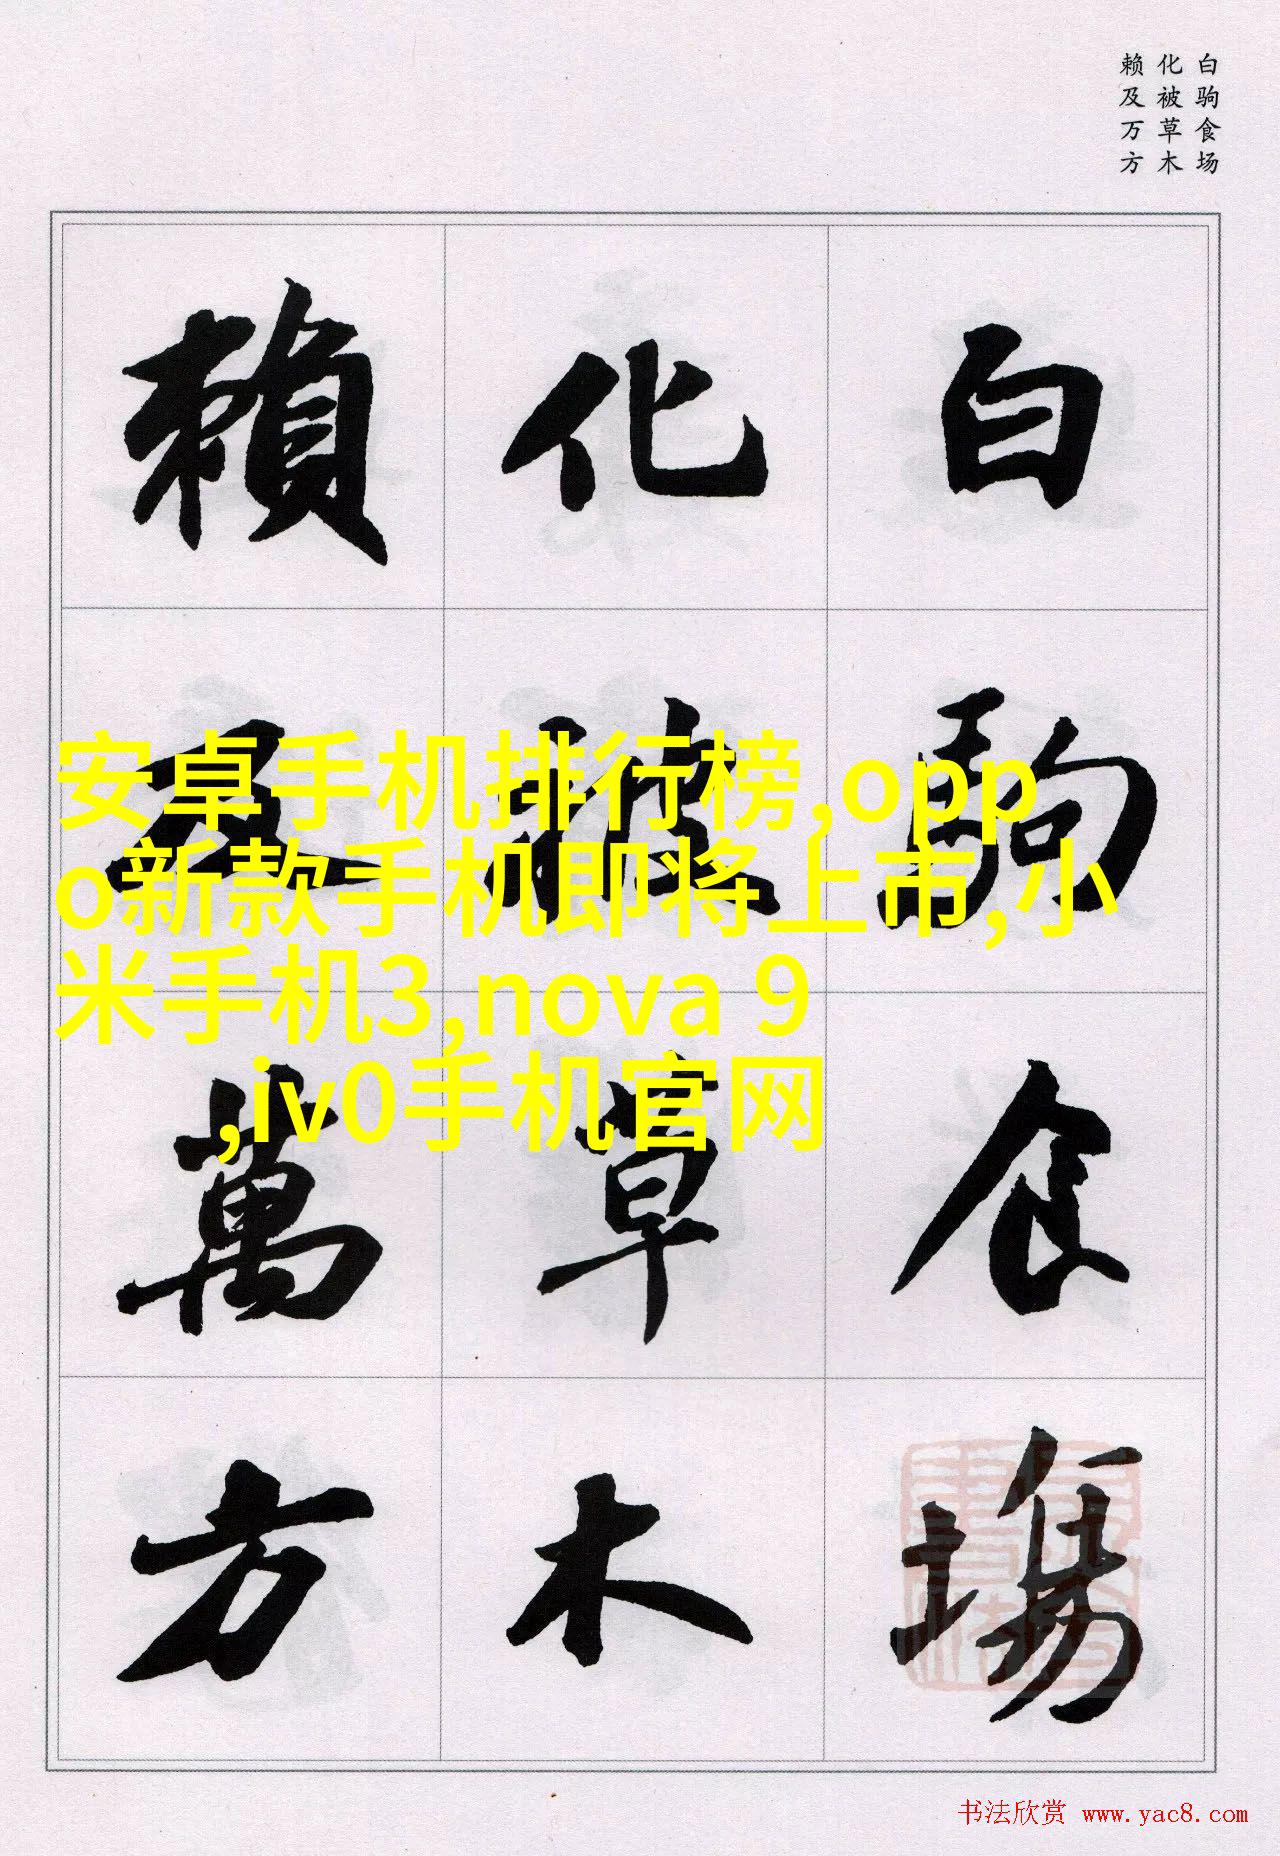 白驹食场
化被草木
赖及万方
白駒食場
化被草木
賴及萬方
安卓手机排行榜,opp
o新款手机即将上市,小
米手机3,nova 9
,iv0手机官网
书法欣赏 www.yac8.com